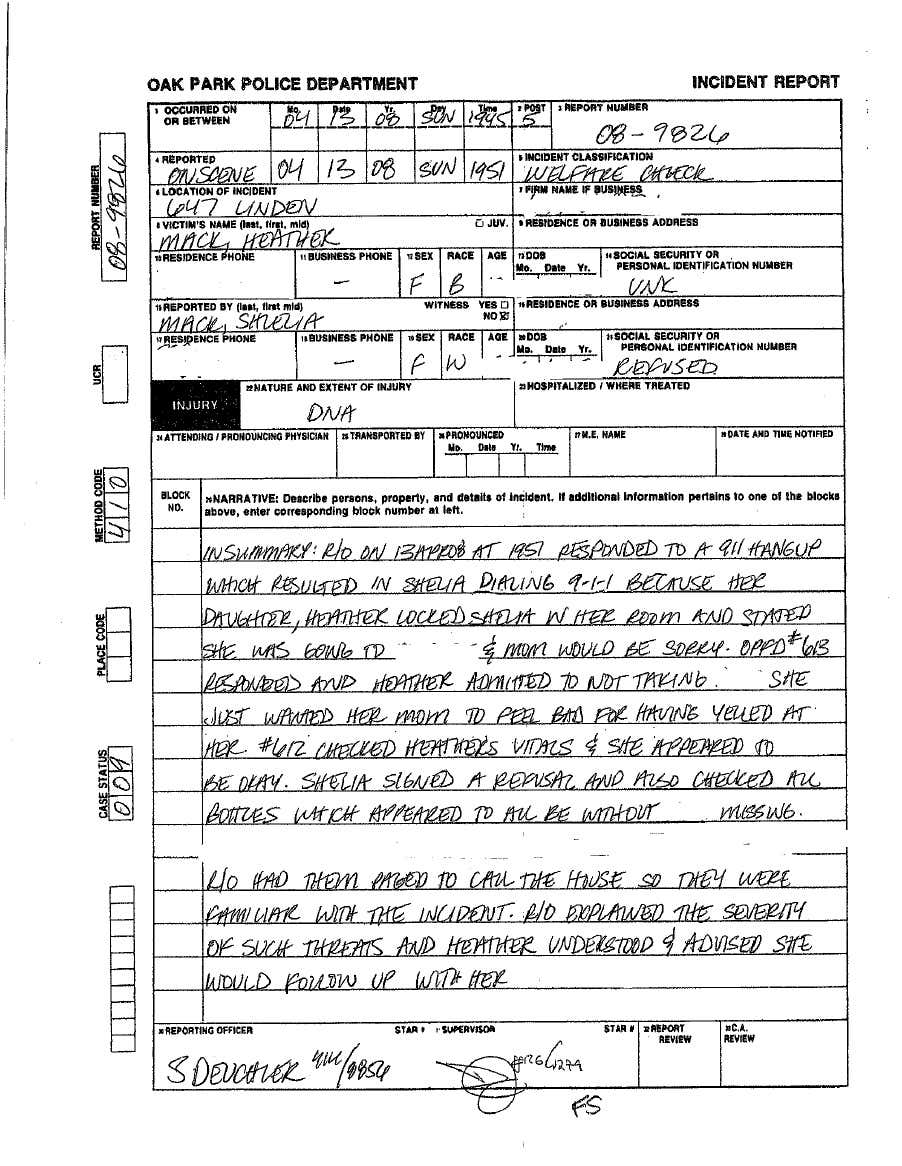 OAK PARK POLICE DEPARTMENT INCIDENT REPORT
1 OCCURRED ON OR BETWEEN Mo. 04 Date 13 Yr. 08 Day SUN Time 1945 2 POST 5 3 REPORT NUMBER 08-9826
4 REPORTED ONSCENE 04 13 08 SUN 1951 5 INCIDENT CLASSIFICATION WELFARE CHECK
6 LOCATION OF INCIDENT 647 LINDEN 7 FIRM NAME IF BUSINESS
8 VICTIM'S NAME (last, first, mid) □ JUV. MACK, HEATHER 9 RESIDENCE OR BUSINESS ADDRESS
10 RESIDENCE PHONE 11 BUSINESS PHONE - 12 SEX F RACE B AGE -- 13 DOB Mo. Date Yr. 14 SOCIAL SECURITY OR PERSONAL IDENTIFICATION NUMBER UNK
15 REPORTED BY (last, first mid) MACK, SHELIA WITNESS YES □ NO ☒ 16 RESIDENCE OR BUSINESS ADDRESS
17 RESIDENCE PHONE 18 BUSINESS PHONE - 19 SEX F RACE W AGE 20 DOB Mo. Date Yr. 21 SOCIAL SECURITY OR PERSONAL IDENTIFICATION NUMBER REFUSED
INJURY 22 NATURE AND EXTENT OF INJURY DNA 23 HOSPITALIZED / WHERE TREATED
24 ATTENDING / PRONOUNCING PHYSICIAN 25 TRANSPORTED BY 26 PRONOUNCED Mo. Date Yr. Time 27 M.E. NAME 28 DATE AND TIME NOTIFIED
BLOCK NO. 29 NARRATIVE: Describe persons, property, and details of incident. If additional information pertains to one of the blocks
above, enter corresponding block number at left.
IN SUMMARY: R/O ON 13APR08 AT 1951 RESPONDED TO A 911 HANGUP
WHICH RESULTED IN SHELIA DIALING 9-1-1 BECAUSE HER
DAUGHTER, HEATHER LOCKED SHELIA IN HER ROOM AND STATED
SHE WAS GOING TO & MOM WOULD BE SORRY. OPFD #613
RESPONDED AND HEATHER ADMITTED TO NOT TAKING. SHE
JUST WANTED HER MOM TO FEEL BAD FOR HAVING YELLED AT
HER #612 CHECKED HEATHER'S VITALS & SHE APPEARED TO
BE OKAY. SHELIA SIGNED A REFUSAL AND ALSO CHECKED ALL
BOTTLES WHICH APPEARED TO ALL BE WITHOUT MISSING.
R/O HAD THEM PAGED TO CALL THE HOUSE SO THEY WERE
FAMILIAR WITH THE INCIDENT. R/O EXPLAINED THE SEVERITY
OF SUCH THREATS AND HEATHER UNDERSTOOD & ADVISED SHE
WOULD FOLLOW UP WITH HER
30 REPORTING OFFICER STAR # 31 SUPERVISOR STAR # 32 REPORT REVIEW 33 C.A. REVIEW
S DEUCHLER
FS
REPORT NUMBER 08-9826
UCR
METHOD CODE 410
PLACE CODE
CASE STATUS 009